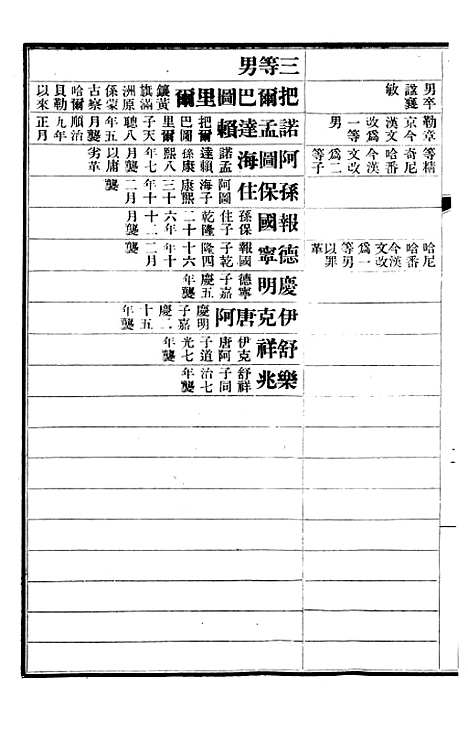 男卒諡襄敏
勒章京今漢文改為一等男
等精奇尼哈番今漢文改為二等子
哈尼哈番今漢文改為一等男以罪革
三等男
把爾巴圖里爾
鑲黃旗滿洲原係蒙古察哈爾貝勒以來
諾孟達賴
把爾巴圖里爾子天聰八年五月襲順治九年正月
阿圖海
諾孟達賴孫康熙八年七月襲以庸劣革
孫保住
阿圖海子康熙三十十年二月襲
報國
孫保住子乾隆二十六年十二月襲
德寧
報國子乾隆四十六年十二月襲
慶明
德寧子嘉慶五年襲
伊克唐阿
慶明子嘉慶二十五年襲
舒祥
伊克唐阿子道光七年襲
樂兆
舒祥子同治七年襲